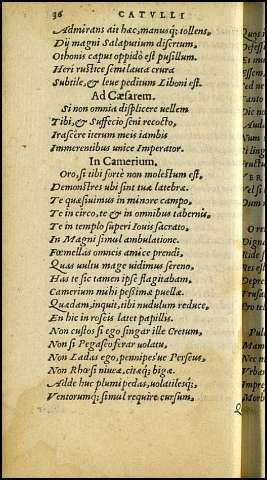 36 CATVLLI
Admirans ait hæc, manusq; tollens,
Dij magni Salaputium disertum.
Othonis caput oppidò est pusillum.
Heri rustice semilauta crura
Subtile, & leue peditum Liboni est.
Ad Cæsarem.
Si non omnia displicere uellem
Tibi, & Suffecio seni recocto,
Irascêre iterum meis iambis
Immerentibus unice Imperator.
In Camerium.
Oro, si tibi fortè non molestum est,
Demonstres ubi sint tuæ latebræ.
Te quæsiuimus in minore campo,
Te in circo, te & in omnibus tabernis,
Te in templo superi Iouis sacrato,
In Magni simul ambulatione.
Fœmellas omneis amice prendi,
Quas uultu mage uidimus sereno,
Has te sic tamen ipse flagitabam,
Camerium mihi pessimæ puellæ.
Quædam, inquit, tibi nudulum reduce,
En hic in roseis latet papillis.
Non custos si ego fingar ille Cretum,
Non si Pegaseo ferar uolatu,
Non Ladas ego, pennipes'ue Perseus,
Non Rhœsi niueæ, citæq; bigæ.
Adde huc plumipedas, uolatilesq;,
Ventorumq; simul require cursum,